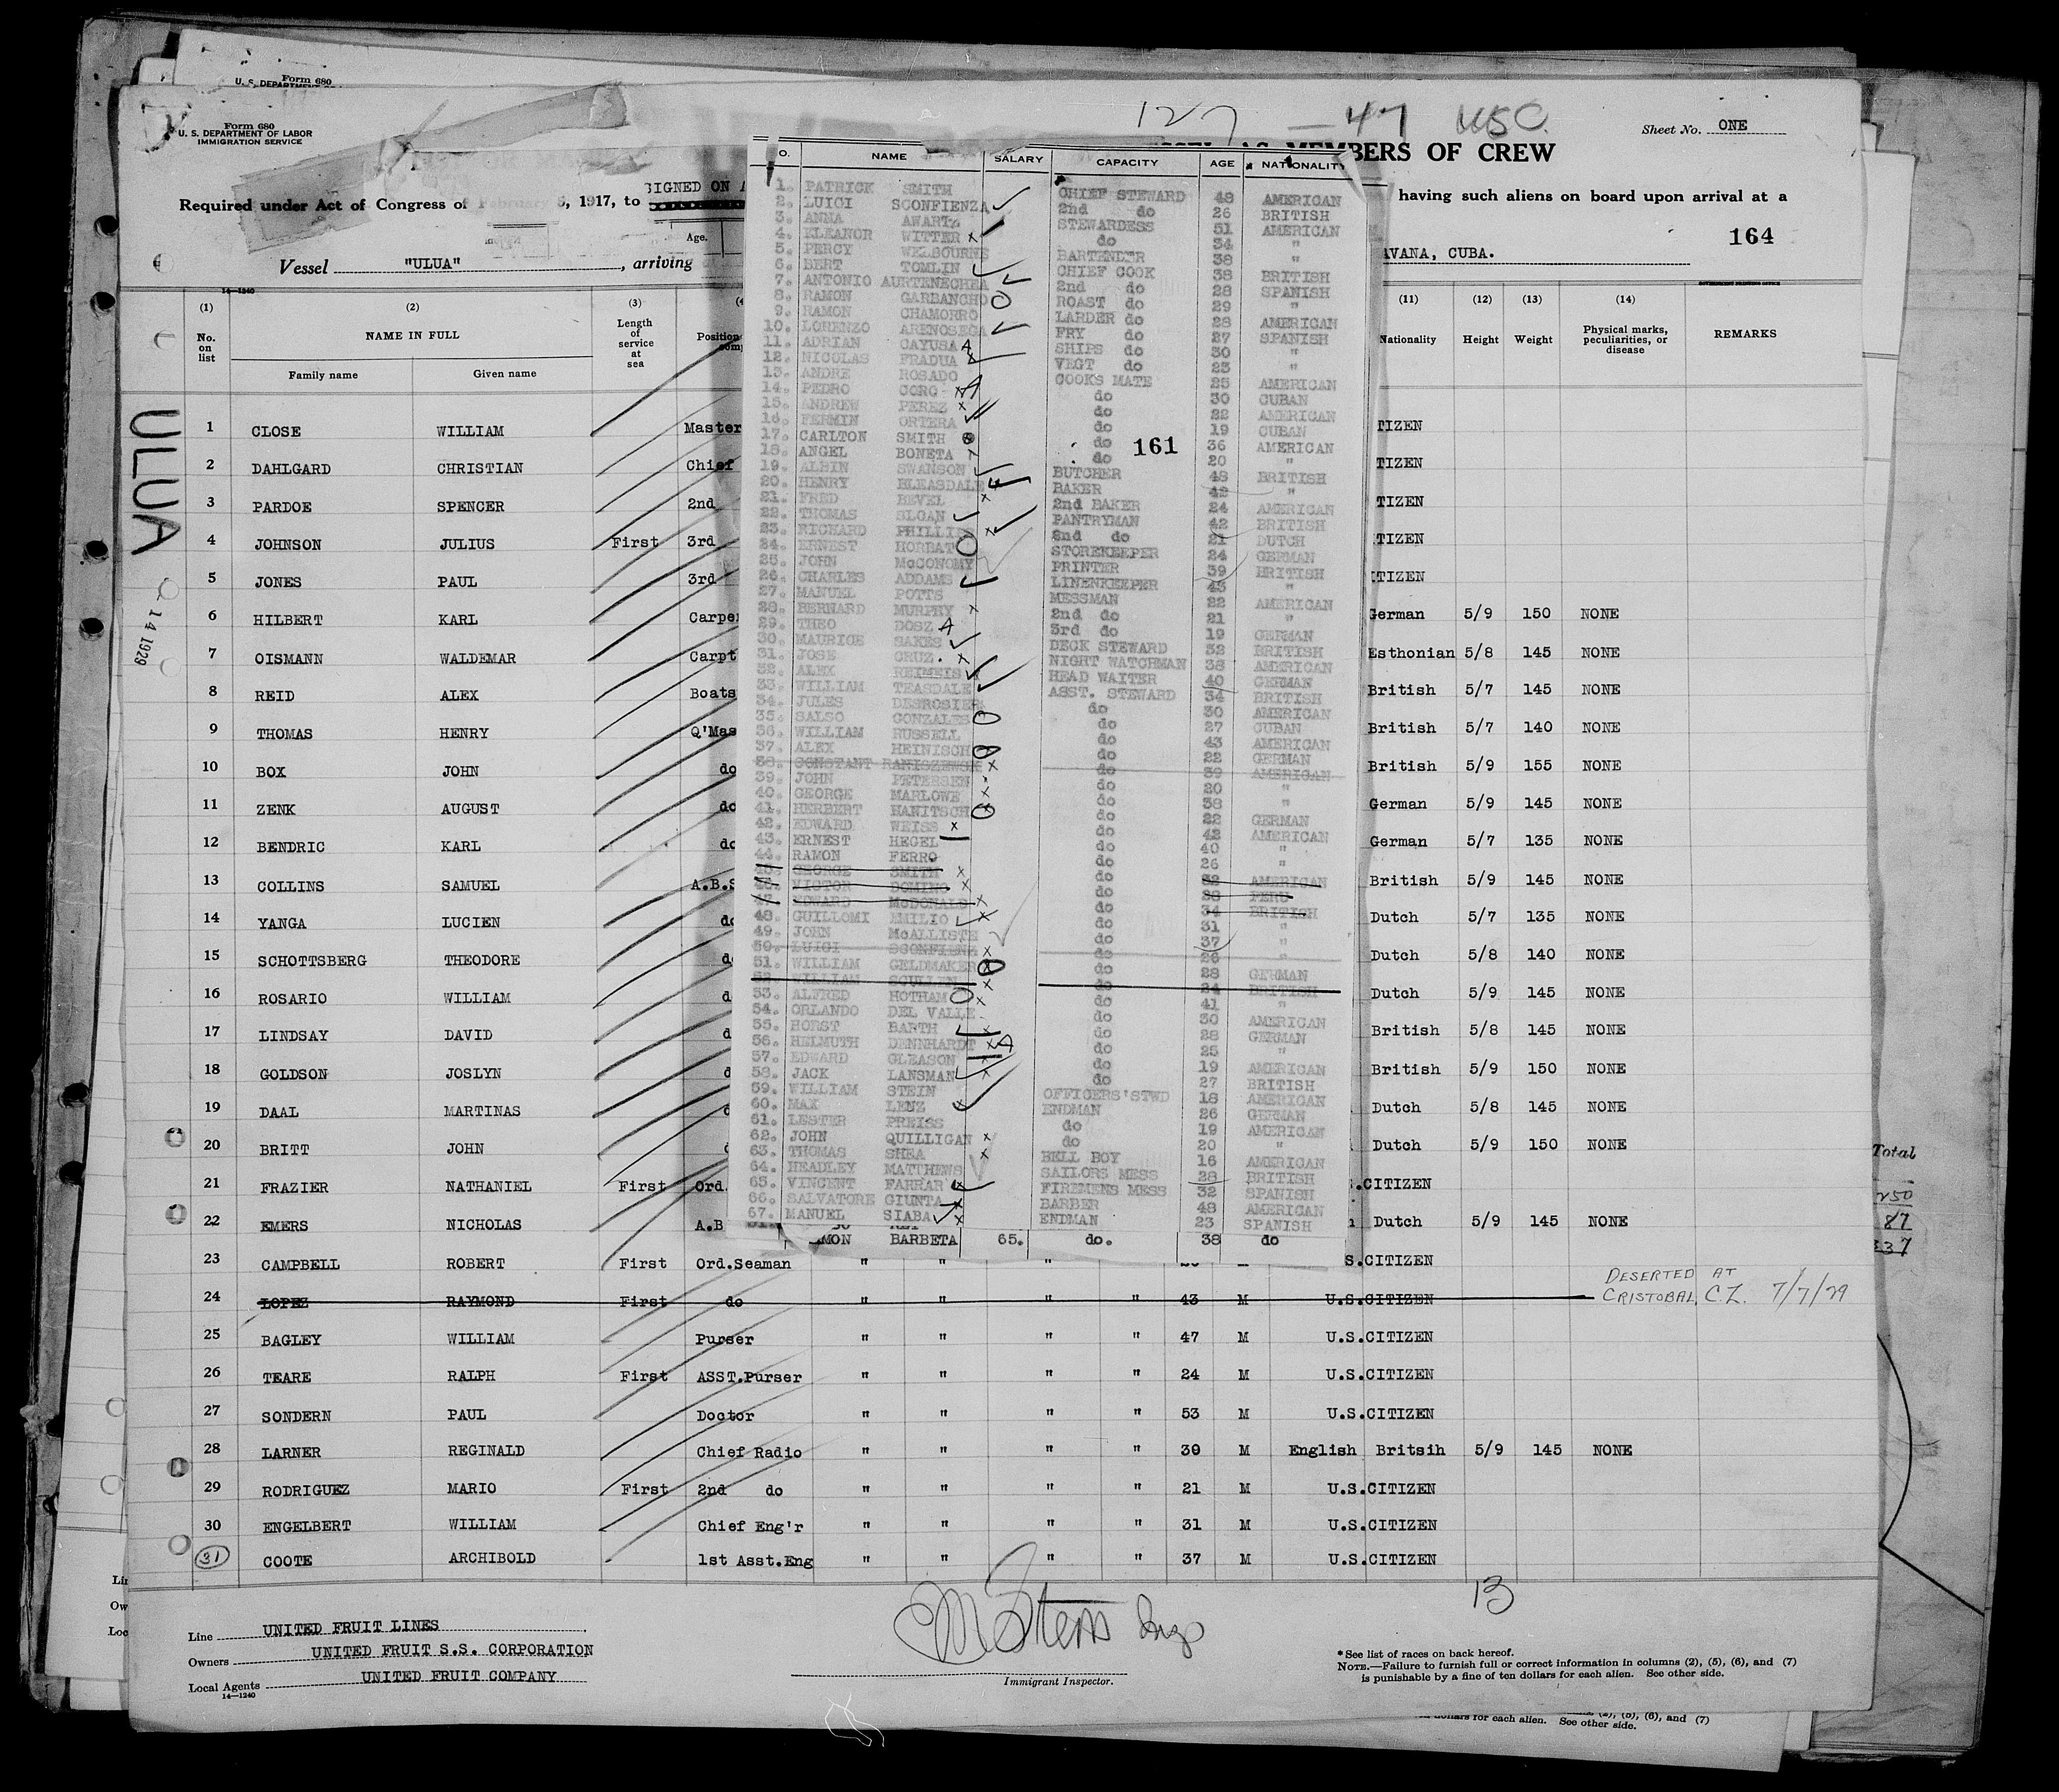 Form 680
U. S. DEPARTMENT
Form 680
U. S. DEPARTMENT OF LABOR
IMMIGRATION SERVICE
127 — 47 USC.
Sheet No. ONE
AS MEMBERS OF CREW
SIGNED ON
Required under Act of Congress of February 5, 1917, to
having such aliens on board upon arrival at a
164
Age.
Vessel "ULUA" , arriving
AVANA, CUBA.
14—1240
(1) (2) (3) (11) (12) (13) (14)
No. on list NAME IN FULL Length of service at sea Position Nationality Height Weight Physical marks, peculiarities, or disease REMARKS
Family name Given name
ULUA
14 1929
1 CLOSE WILLIAM Master TIZEN
2 DAHLGARD CHRISTIAN Chief TIZEN
3 PARDOE SPENCER 2nd TIZEN
4 JOHNSON JULIUS First 3rd TIZEN
5 JONES PAUL 3rd TIZEN
6 HILBERT KARL Carpe German 5/9 150 NONE
7 OISMANN WALDEMAR Carpt Esthonian 5/8 145 NONE
8 REID ALEX Boats British 5/7 145 NONE
9 THOMAS HENRY Q'Mas British 5/7 140 NONE
10 BOX JOHN do British 5/9 155 NONE
11 ZENK AUGUST do German 5/9 145 NONE
12 BENDRIC KARL do German 5/7 135 NONE
13 COLLINS SAMUEL A.B.S British 5/9 145 NONE
14 YANGA LUCIEN do Dutch 5/7 135 NONE
15 SCHOTTSBERG THEODORE d Dutch 5/8 140 NONE
16 ROSARIO WILLIAM d Dutch 5/9 145 NONE
17 LINDSAY DAVID d British 5/8 145 NONE
18 GOLDSON JOSLYN d British 5/9 150 NONE
19 DAAL MARTINAS d Dutch 5/8 145 NONE
20 BRITT JOHN Dutch 5/9 150 NONE
21 FRAZIER NATHANIEL First Ord. .CITIZEN
22 EMERS NICHOLAS A.B Dutch 5/9 145 NONE
23 CAMPBELL ROBERT First Ord.Seaman " " " S.CITIZEN
24 LOPEZ RAYMOND First do " " " " 43 M U.S.CITIZEN DESERTED AT CRISTOBAL, C.Z. 7/7/29
25 BAGLEY WILLIAM Purser " " " " 47 M U.S.CITIZEN
26 TEARE RALPH First ASST.Purser " " " " 24 M U.S.CITIZEN
27 SONDERN PAUL Doctor " " " " 53 M U.S.CITIZEN
28 LARNER REGINALD Chief Radio " " " " 30 M English Britsih 5/9 145 NONE
29 RODRIGUEZ MARIO First 2nd do " " " " 21 M U.S.CITIZEN
30 ENGELBERT WILLIAM Chief Eng'r " " " " 31 M U.S.CITIZEN
31 COOTE ARCHIBOLD 1st Asst.Eng " " " " 37 M U.S.CITIZEN
O. NAME SALARY CAPACITY AGE NATIONALITY
1. PATRICK SMITH CHIEF STEWARD 48 AMERICAN
2. LUIGI SCONFIENZA 2nd do 26 BRITISH
3. ANNA AWARTZ STEWARDESS 51 AMERICAN
4. ELEANOR WITTER do 34 "
5. PERCY WELBOURNE BARTENDER 38 "
6. BERT TOMLIN CHIEF COOK 38 BRITISH
7. ANTONIO AURTENECHEA 2nd do 28 SPANISH
8. RAMON GARBANCHO ROAST do 29 "
9. RAMON CHAMORRO LARDER do 28 AMERICAN
10. LORENZO ARENOSEGA FRY do 27 SPANISH
11. ADRIAN CAYUSA SHIPS do 30 "
12. NICOLAS FRADUA VEGT do 23 "
13. ANDRE ROSADO COOKS MATE 25 AMERICAN
14. PEDRO CORO do 30 CUBAN
15. ANDREW PEREZ do 22 AMERICAN
16. FERMIN ORTERA do 19 CUBAN
17. CARLTON SMITH do 36 AMERICAN
161
18. ANGEL BONETA do 20 "
19. ALBIN SWANSON BUTCHER 48 BRITISH
20. HENRY BLEASDALE BAKER 42 "
21. FRED BEVEL 2nd BAKER 24 AMERICAN
22. THOMAS SLOAN PANTRYMAN 42 BRITISH
23. RICHARD PHILLIPS 2nd do 21 DUTCH
24. ERNEST HORBAT STOREKEEPER 24 GERMAN
25. JOHN McCONOMY PRINTER 39 BRITISH
26. CHARLES ADDAMS LINENKEEPER 45 "
27. MANUEL POTTS MESSMAN 22 AMERICAN
28. BERNARD MURPHY 2nd do 21 "
29. THEO DOSZ 3rd do 19 GERMAN
30. MAURICE SAKES DECK STEWARD 32 BRITISH
31. JOSE CRUZ. NIGHT WATCHMAN 38 AMERICAN
32. ALEX REIMEIS HEAD WAITER 40 GERMAN
33. WILLIAM TEASDALE ASST. STEWARD 34 BRITISH
34. JULES DESROSIER do 30 AMERICAN
35. SALSO GONZALES do 27 CUBAN
36. WILLIAM RUSSELL do 43 AMERICAN
37. ALEX HEINISCH do 22 GERMAN
38. CONSTANT do 39 AMERICAN
39. JOHN PETERSEN do 20 "
40. GEORGE MARLOWE do 38 "
41. HERBERT HANITSCH do 22 GERMAN
42. EDWARD WEISS do 42 AMERICAN
43. ERNEST HEGEL do 40 "
44. RAMON FERRO do 26 "
45. GEORGE SMITH do 32 AMERICAN
46. VICTOR DOMINO do 38 PERU
47. EDWARD McDONALD do 34 BRITISH
48. GUILLOMI EMILIO do 31 "
49. JOHN McALLISTE do 37 "
50. LUIGI SCONFIENZ do 26 "
51. WILLIAM GELDMAKER do 28 GERMAN
52. WILLIAM SCULLEN do 24 BRITISH
53. ALFRED HOTHAM do 41 "
54. ORLANDO DEL VALLE do 30 AMERICAN
55. HORST BARTH do 28 GERMAN
56. HELMUTH DENNHARDT do 25 "
57. EDWARD GLEASON do 19 AMERICAN
58. JACK LANSMAN do 27 BRITISH
59. WILLIAM STEIN OFFICERS'STWD 18 AMERICAN
60. MAX LENZ ENDMAN 26 GERMAN
61. LESTER PREISS do 19 AMERICAN
62. JOHN QUILLIGAN do 20 "
63. THOMAS SHEA BELL BOY 16 AMERICAN
64. HEADLEY MATTHEWS SAILORS MESS 28 BRITISH
65. VINCENT FARRAR FIREMENS MESS 32 SPANISH
66. SALVATORE GIUNTA BARBER 48 AMERICAN
67. MANUEL SIABA ENDMAN 23 SPANISH
MON BARBETA 65. do. 38 do
Total
250
87
337
13
Line UNITED FRUIT LINES
Owners UNITED FRUIT S.S. CORPORATION
Local Agents UNITED FRUIT COMPANY
14—1240
Immigrant Inspector.
*See list of races on back hereof.
NOTE.—Failure to furnish full or correct information in columns (2), (5), (6), and (7)
is punishable by a fine of ten dollars for each alien. See other side.
(2), (5), (6), and (7)
dollars for each alien. See other side.